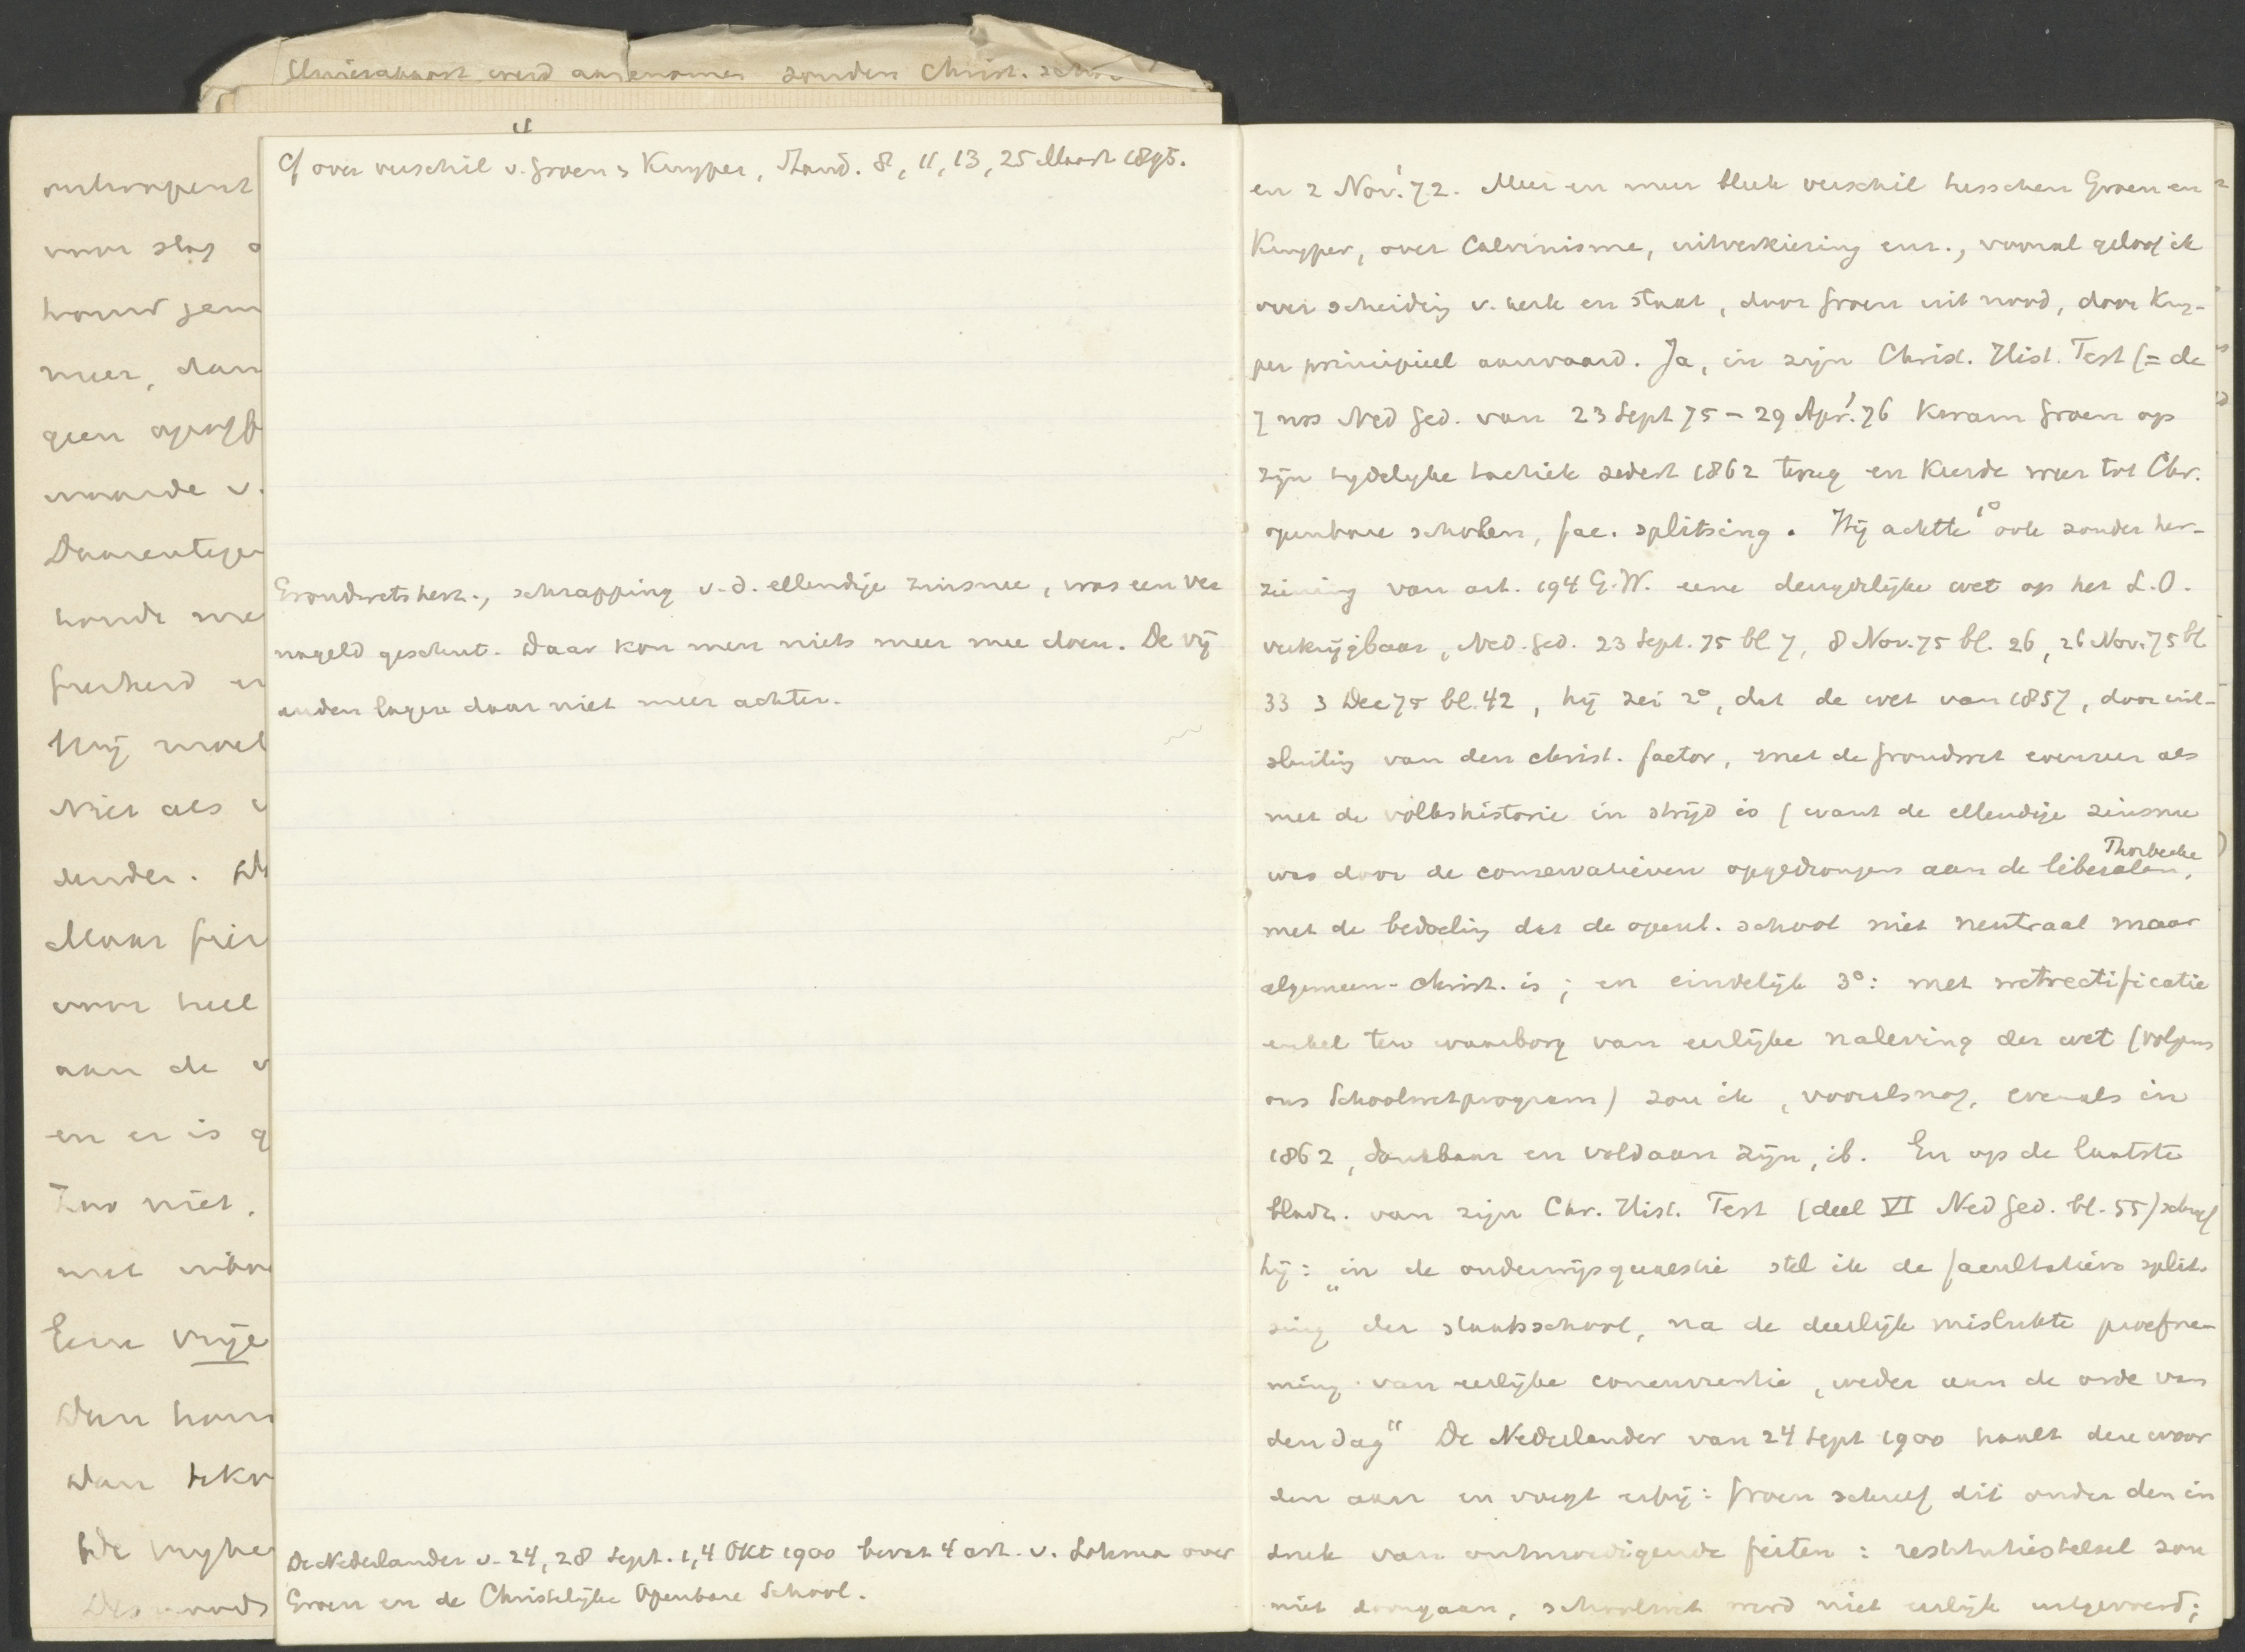 werd aangenomen zonder Christ.
onder
voor slag
houd
meer, dan
geen
waarde v.
Daarentegen
Hij moet
Niet als
Maar
voor heel
aan de
en er is
Zoo niet.
met
Eene vrije
Dan
Dan
De
cf over verschil v. Groen & Kuyper, Stand. 8, 11, 13, 25 Maart 1895.
Grondwetsherz., schrapping v.d. ellendige zinsnee, was een ver
nageld geschut. Daar kon men niets meer mee doen. De vij
anden lagen daar niet meer achter.
De Nederlander v. 24, 28 Sept. 1, 4 Okt 1900 bevat 4 art. v. Lohman over
Groen en de Christelijke Openbare School.
en 2 Nov. '72. Meer en meer bleek verschil tusschen Groen en
Kuyper, over Calvinisme, uitverkiezing enz., vooral geloof ik
over scheiding v. kerk en staat, door Groen uit nood, door Kuy-
per principieel aanvaard. Ja, in zijn Christ. Hist. Test (= de
7 nos Ned Ged. van 23 Sept 75 - 29 Apr. '76 kwam Groen op
zijn tydelyke tactiek sedert 1862 terug en keerde weer tot Chr.
openbare scholen, fac. splitsing. Hij achtte 1° ook zonder her-
ziening van art. 194 G.W. eene dergelijke wet op het L.O.
verkrijgbaar, Ned. Ged. 23 Sept. 75 bl 7, 8 Nov. 75 bl. 26, 26 Nov. 75 bl
33 3 Dec 75 bl. 42, hij zei 2°, dat de wet van 1857, door uit-
sluiting van den christ. factor, met de grondwet evenzeer als
met de volkshistorie in strijd is (want de ellendige zinsnee
was door de conservatieven opgedrongen aan de liberalen, Thorbecke
met de bedoeling dat de openb. school niet neutraal maar
algemeen-christ. is; en eindelijk 3°: met wetrectificatie
enkel ten waarborg van eerlijke naleving der wet (volgens
ons Schoolwetprogram) zou ik, vooralsnog, evenals in
1862, dankbaar en voldaan zijn, ib. En op de laatste
bladz. van zijn Chr. Hist. Test (deel VI Ned Ged. bl. 55) schreef
hij: „in de onderwijsquaestie stel ik de facultatieve split-
sing der staatsschool, na de deerlijk mislukte proefne-
ming van eerlijke concurrentie, weder aan de orde van
den dag" De Nederlander van 24 Sept 1900 haalt deze woor
den aan en voegt erbij: Groen schreef dit onder den in
druk van ontmoedigende feiten: restitutiestelsel zou
niet doorgaan, schoolwet werd niet eerlijk uitgevoerd;